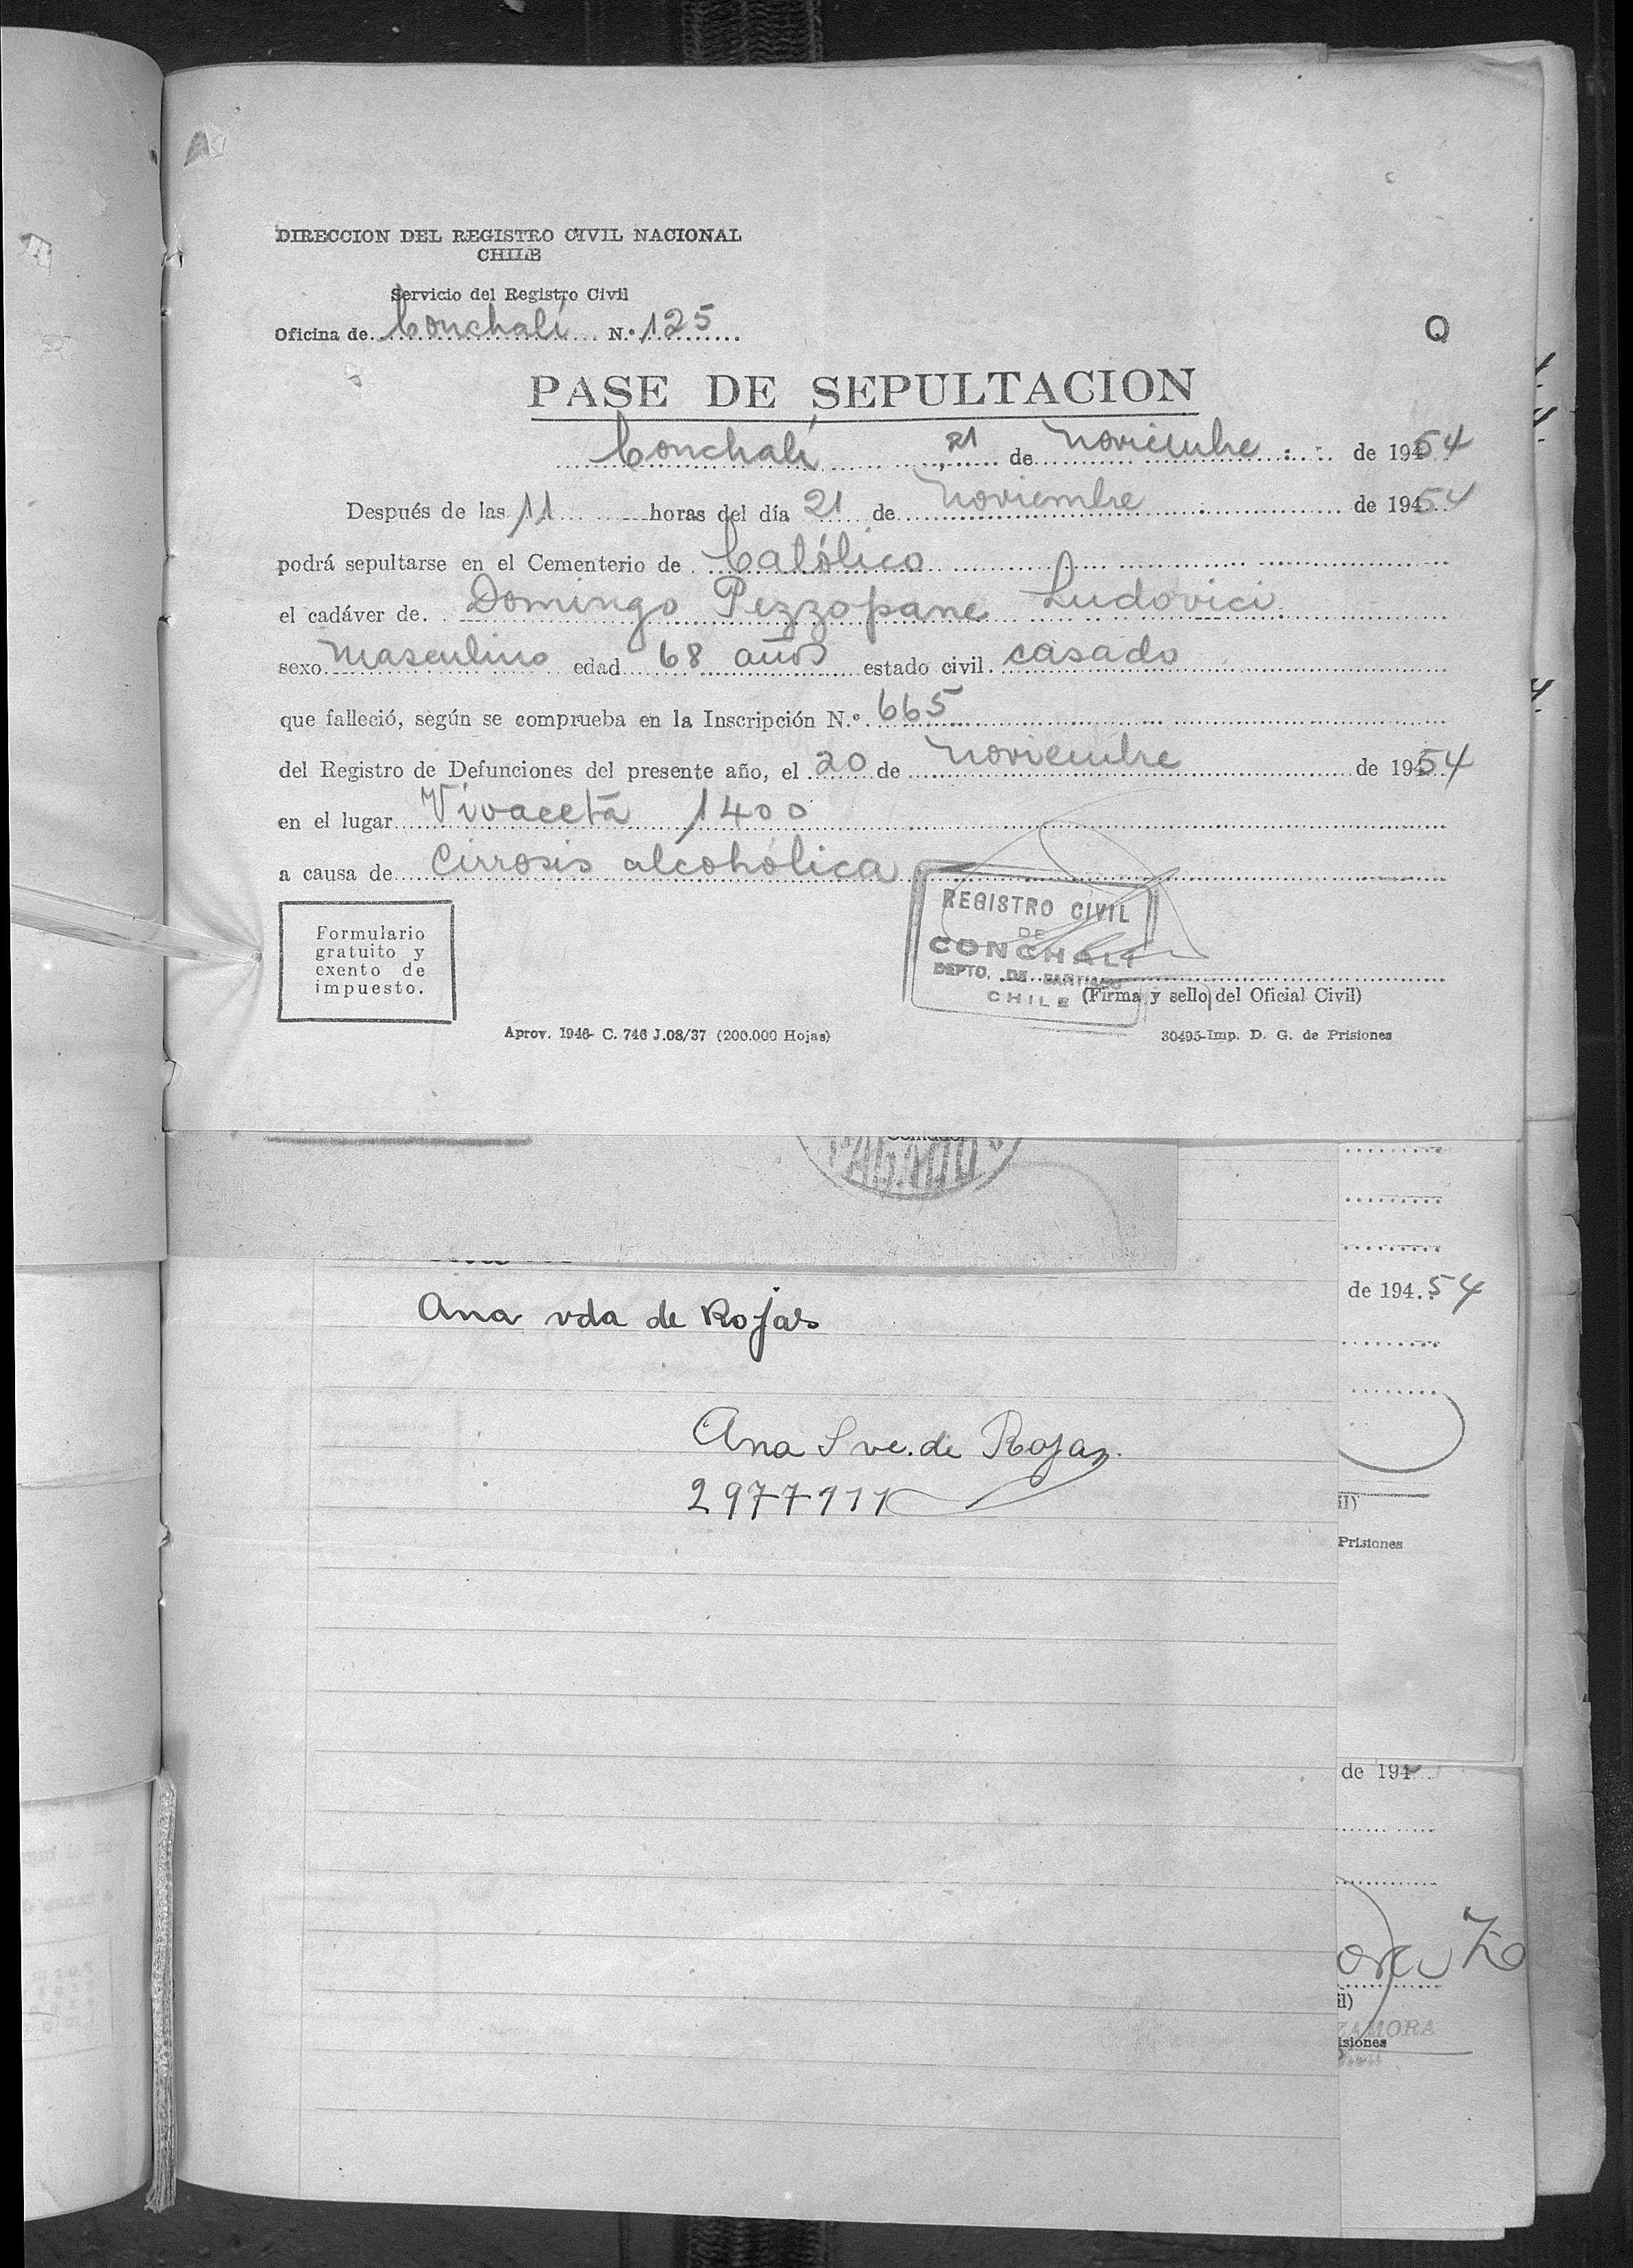 DIRECCION DEL REGISTRO CIVIL NACIONAL
CHILE
Servicio del Registro Civil
Oficina de Conchalí N.º 125
Q
PASE DE SEPULTACION
Conchalí, 21 de Noviembre de 1954
Después de las 11 horas del día 21 de Noviembre de 1954
podrá sepultarse en el Cementerio de Católico
el cadáver de Domingo Pezzopane Ludovici
sexo Masculino edad 68 años estado civil casado
que falleció, según se comprueba en la Inscripción N.º 665
del Registro de Defunciones del presente año, el 20 de Noviembre de 1954
en el lugar Vivaceta 1400
a causa de Cirrosis alcohólica
Formulario
gratuito y
exento de
impuesto.
REGISTRO CIVIL
DE
CONCHALI
DEPTO. DE SANTIAGO
CHILE
(Firma y sello del Oficial Civil)
Aprov. 1946- C. 746 J.08/37 (200.000 Hojas)
30495-Imp. D. G. de Prisiones
PAGADO
de 194.54
Ana vda de Rojas
Ana S ve. de Rojas.
2977111
il)
Prisiones
de 194
il)
ZAMORA
isiones